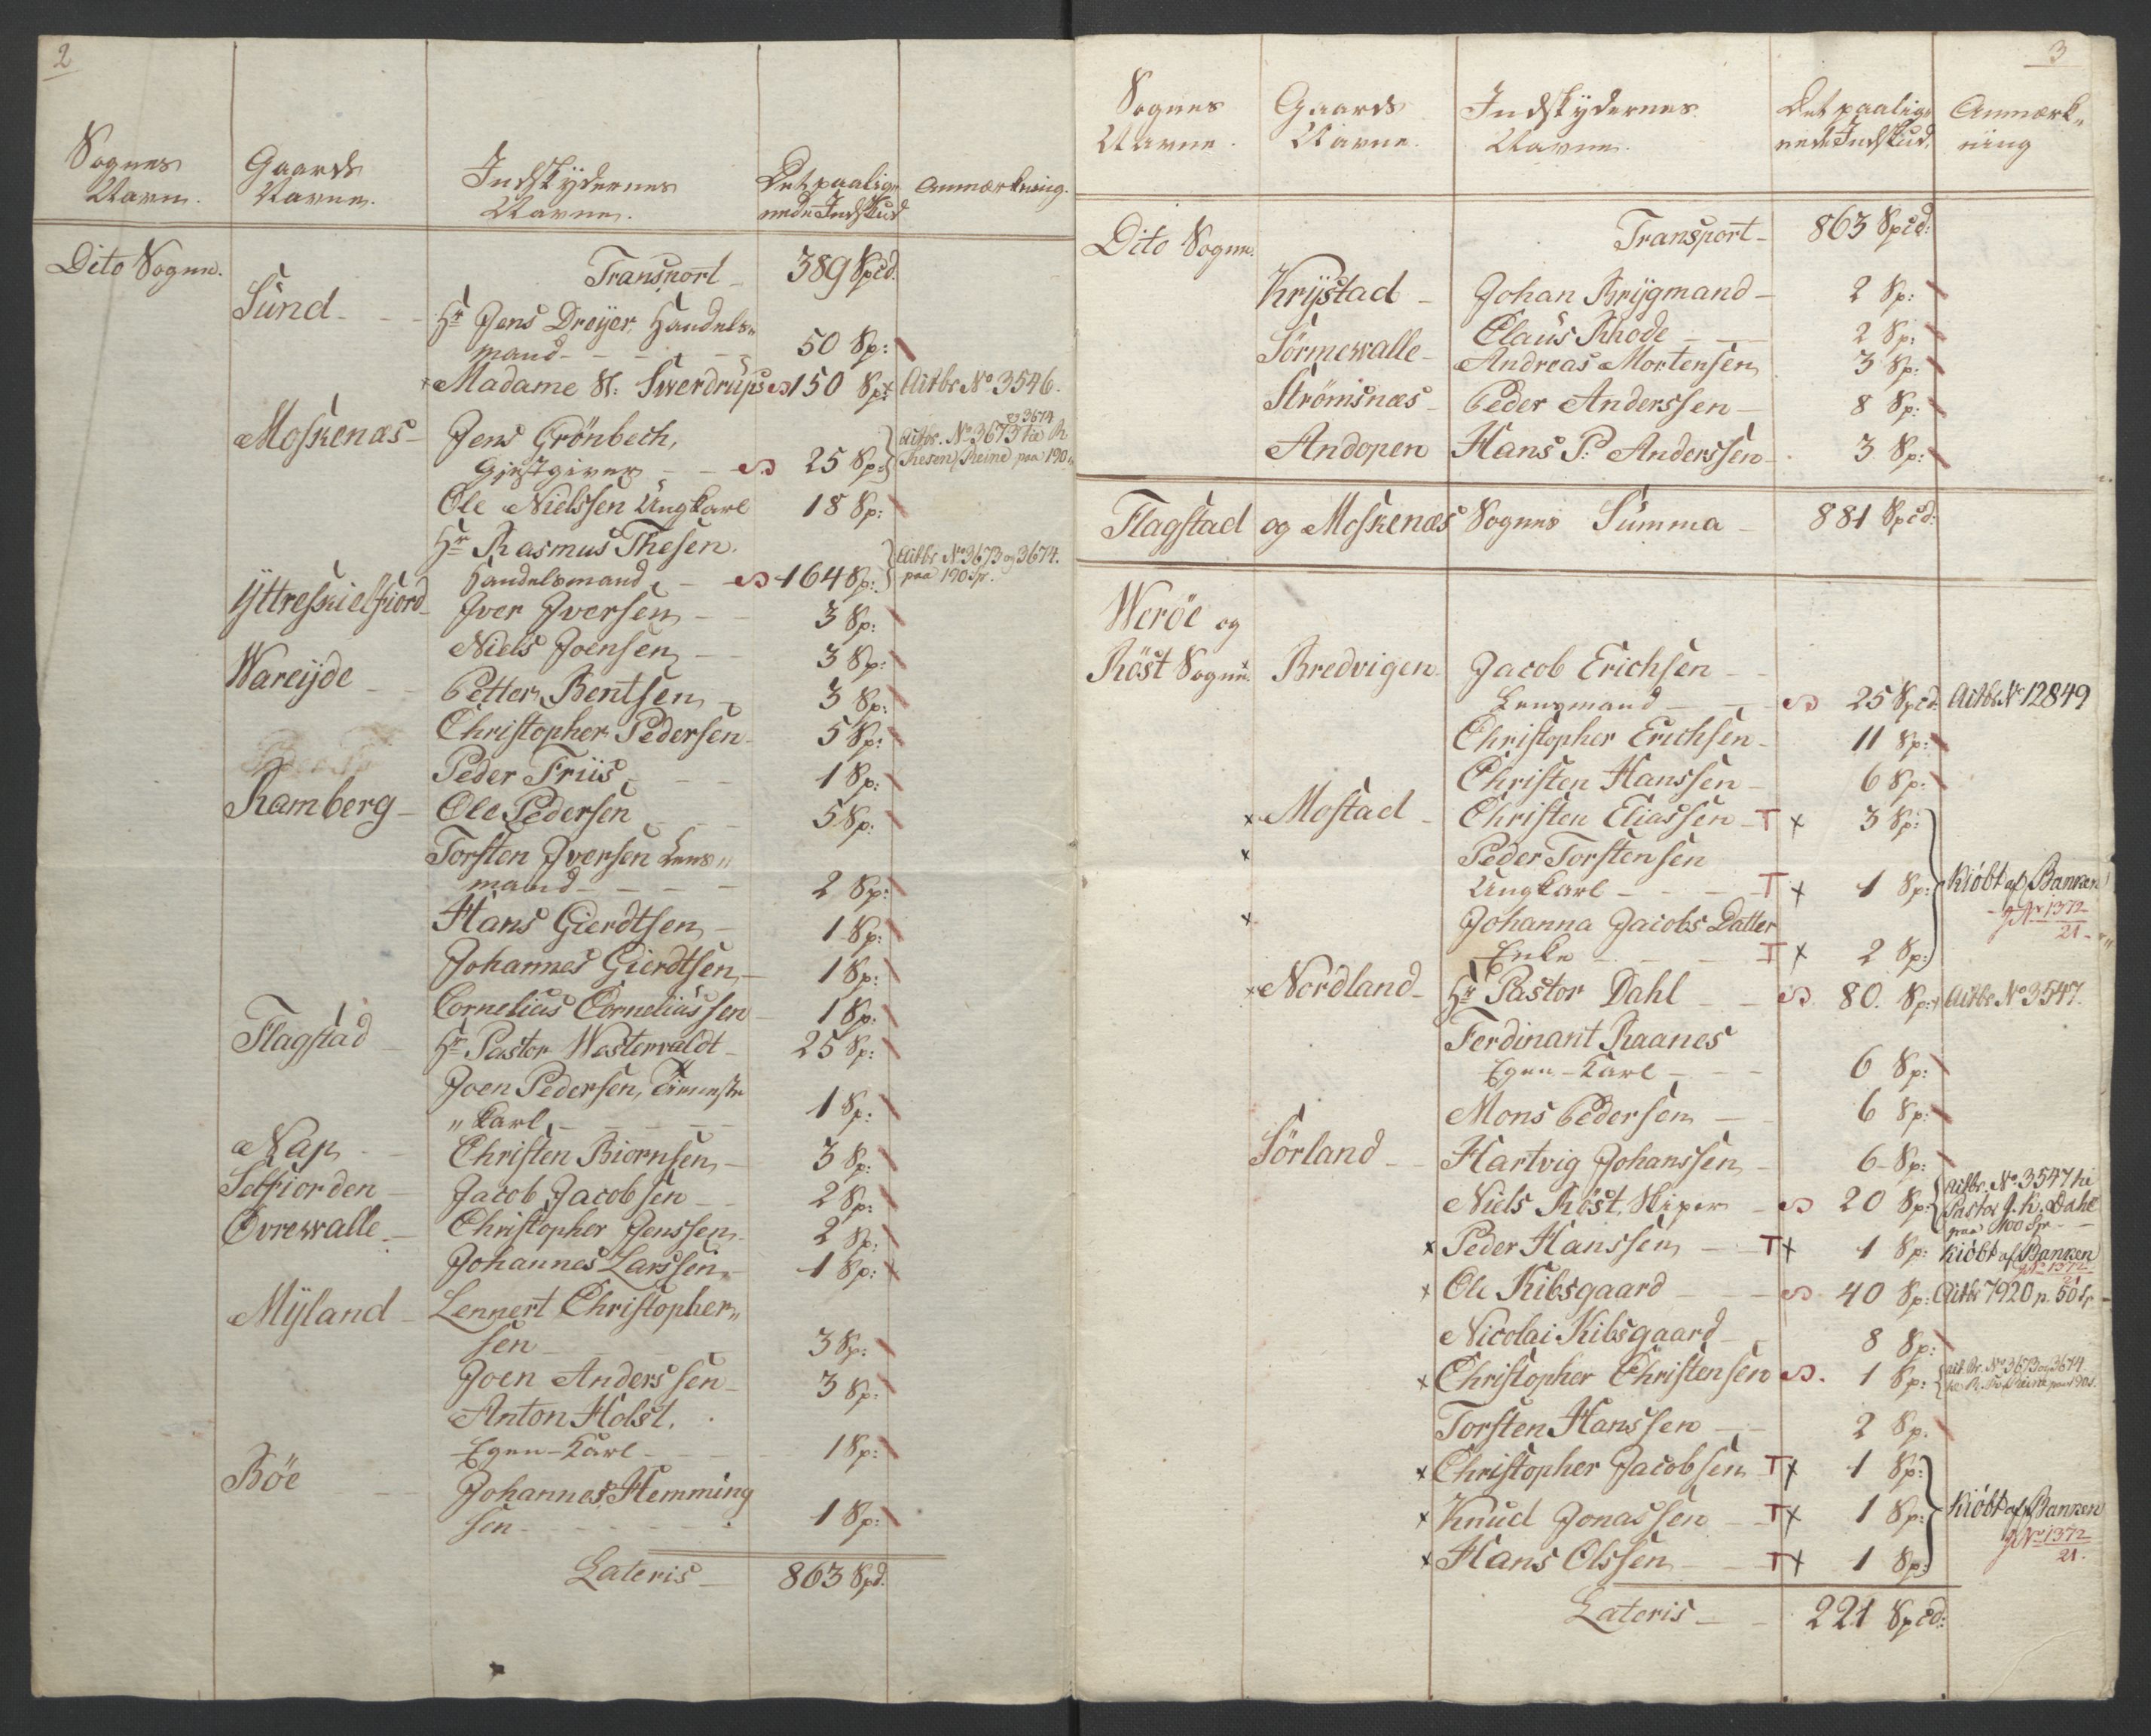 2
Sognes Navne. Gaards Navne. Indskydernes Navne. Det paalig- nede Indskud Anmærkning.
Dito Sogne. Transport 389 Spcd.
Sund Hr Jens Dreyer, Handels-
mand 50 Sp:
× Madame Sl: Swerdrups 150 Sp: Actbr No 3546.
Moskenæs Jens Grönbech,
Gjestgiver 25 Sp: Actbr. No 3673 og 3674 hæ R Thesen, Reine paa 190
Ole Nielssen Ungkarl 18 Sp:
Hr Rasmus Thesen.
Handelsmand 164 Sp: Actbr No 3673 og 3674. paa 190 Sp.
Yttreskielfiord Iver Iversen 3 Sp:
Niels Joensen 3 Sp:
Wareijde Petter Bentsen 3 Sp:
Christopher Pedersen 5 Sp:
Peder Friis 1 Sp:
Ramberg Ole Pedersen 5 Sp:
Torsten Iversen Lens„
mand 2 Sp:
Hans Gierdtsen 1 Sp:
Johannes Gierdtsen 1 Sp:
Cornelius Corneliussen 1 Sp:
Flagstad Hr Pastor Westervaldt 25 Sp:
Joen Pedersen,
„karl 1 Sp:
Nap Christen Biornsen 3 Sp:
Selfiorden Jacob Jacobsen 2 Sp:
Övrewalle Christopher Jenssen 2 Sp:
Johannes Larssen 1 Sp:
Myland Lennert Christopher„
sen 3 Sp:
Joen Anderssen 3 Sp:
Anton Holst.
Egen-Karl 1 Sp:
Böe Johannes Hemming
sen 1 Sp:
Lateris 863 Spd.
3
Sognes Navne. Gaards Navne. Indskydernes Navne. Det paalig- nede Indskud. Anmærk„ ning
Dito Sogne. Transport 863 Spcd:
Krystad Johan Brygmand 2 Sp:
Claus Rhode 2 Sp:
Sörmewalle Andreas Mortensen 3 Sp:
Strömsnæs Peder Anderssen 8 Sp:
Andopen Hans P: Anderssen 3 Sp:
Flagstad og Moskenæs Sognes Summa 881 Spcd:
Weröe og
Röst Sogne. Bredvigen Jacob Erichsen
Lensmand 25 Spcd. Actbr No 12849
Christopher Erichsen 11 Sp:
Christen Hanssen 6 Sp:
× Mostad Christen Eliassen T × 3 Sp:
× Peder Torstensen
Ungkarl T × 1 Sp: Kiöbt af Banken No 1372 21
× Johanna Jacobs Datter
Enke T × 2 Sp:
× Nordland Hr Pastor Dahl 80. Sp: Actbr No 3547.
Ferdinant Raanes
Egen-Karl 6 Sp:
Mons Pedersen 6 Sp:
Sörland Hartvig Johanssen 6 Sp:
Niels Röst, Skiper 20 Sp: Actbr. No 3547 hi Pastor J. K. Dahl paa 100 Sp
× Peder Hanssen T × 1 Sp: Kiöbt af Banken No 1372 21
× Ole Kibsgaard 40 Sp: Actbr 7920 p. 50 Sp
Nicolai Kibsgaard 8 Sp:
× Christopher Christensen 1 Sp: Act Br. No 3673 og 3674
Torsten Hanssen 2 Sp.
× Christopher Jacobsen T × 1 Sp:
× Knud Jonassen T × 1 Sp: Kiöbt af Banken No 1372 21.
× Hans Olssen T × 1 Sp:
Lateris 221 Spcd: